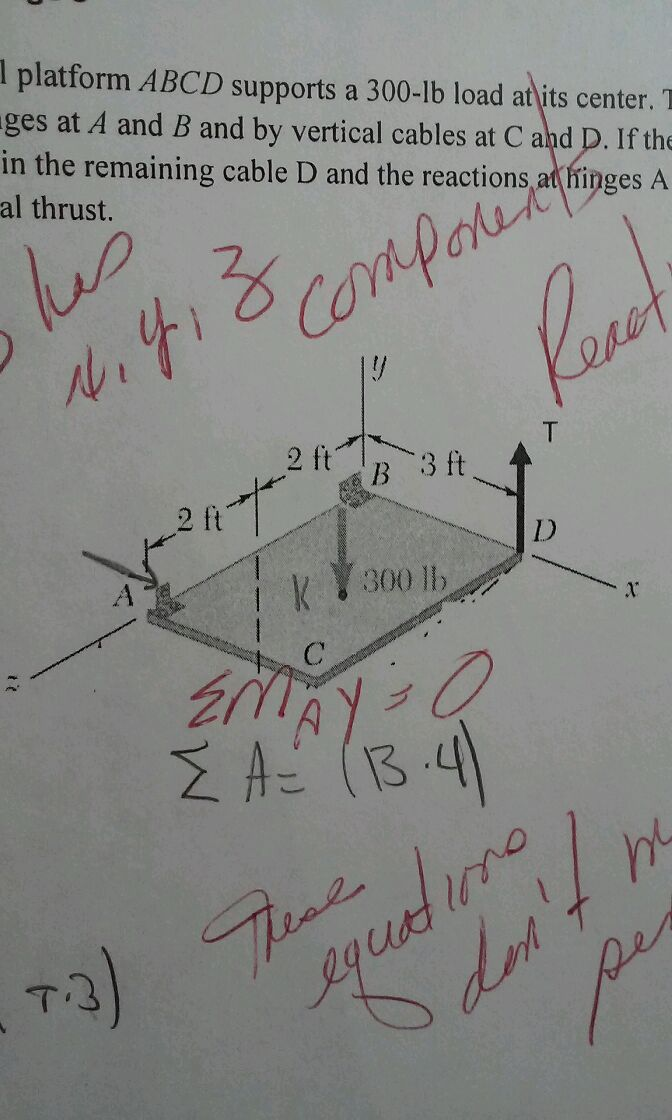 l platform ABCD supports a 300-lb load at its center. T
nges at A and B and by vertical cables at C and D. If the
in the remaining cable D and the reactions at hinges A
al thrust.
has
x, y, z components
React
y
T
2 ft
B
3 ft
2 ft
D
A
K
300 lb
x
C
z
ΣMAy = 0
Σ A = (B·4)
These
equations
don't m
per
T·3)